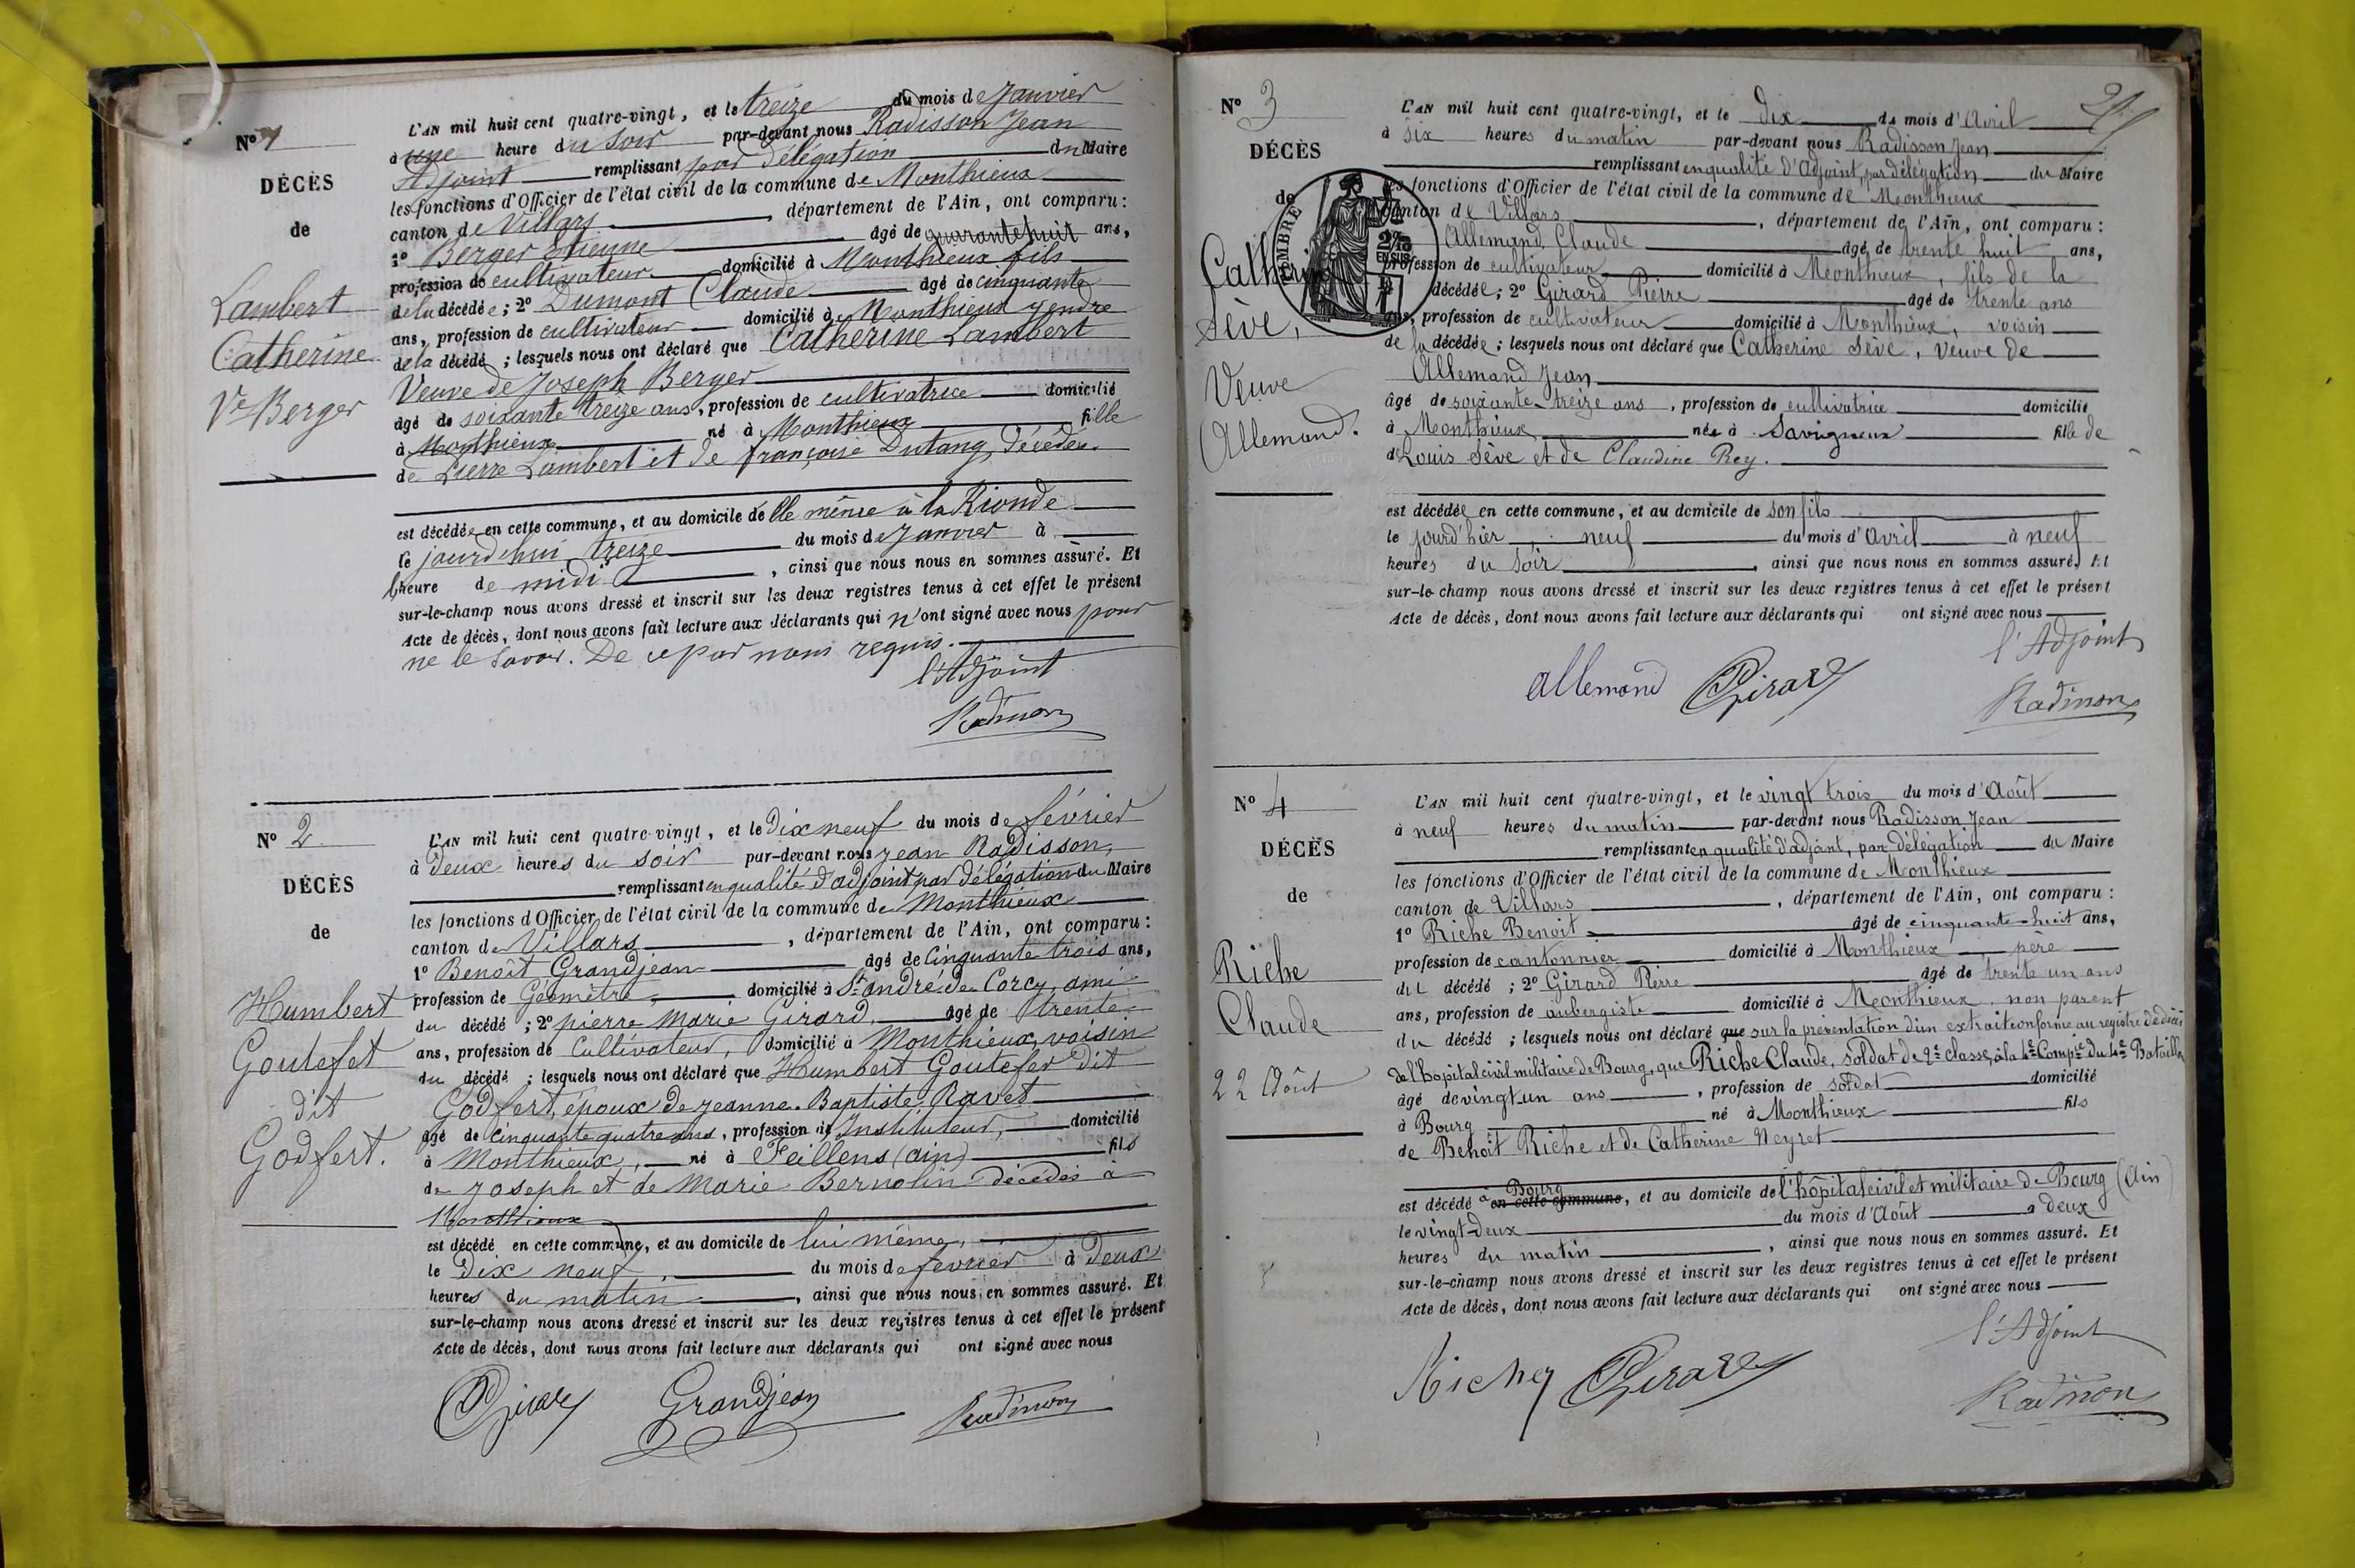 N° 1
DÉCÈS
de
Lambert
Catherine
Ve Berger
L'AN mil huit cent quatre-vingt, et le treize du mois de Janvier
à une heure du soir par-devant nous Radisson Jean
Adjoint remplissant par délégation du Maire
les fonctions d'Officier de l'état civil de la commune de Monthieux
canton de Villars, département de l'Ain, ont comparu :
1° Berger Etienne âgé de quarante huit ans,
profession de cultivateur domicilié à Monthieux fils
de la décédée ; 2° Dumont Claude âgé de cinquante
ans, profession de cultivateur domicilié à Monthieux gendre
de la décédé ; lesquels nous ont déclaré que Catherine Lambert
Veuve de Joseph Berger
âgé de soixante treize ans, profession de cultivatrice domicilié
à Monthieux né à Monthieux fille
de Pierre Lambert et de françoise Dutang, décédés.
est décédée en cette commune, et au domicile de elle même à la Rionde
le jourd'hui treize du mois de Janvier à
l'heure de midi, ainsi que nous nous en sommes assuré. Et
sur-le-champ nous avons dressé et inscrit sur les deux registres tenus à cet effet le présent
Acte de décès, dont nous avons fait lecture aux déclarants qui n'ont signé avec nous pour
ne le savoir. De ce par nous requis.
l'Adjoint
Radisson
N° 2
DÉCÈS
de
Humbert
Goutefet
dit
Godfert.
L'AN mil huit cent quatre-vingt, et le Dix neuf du mois de février
à Deux heures du soir par-devant nous Jean Radisson,
remplissant en qualité d'adjoint par délégation du Maire
les fonctions d'Officier de l'état civil de la commune de Monthieux
canton de Villars, département de l'Ain, ont comparu :
1° Benoît Grandjean âgé de Cinquante trois ans,
profession de Géomètre, domicilié à St andré de Corcy, ami
du décédé ; 2° pierre Marie Girard, âgé de trente
ans, profession de Cultivateur, domicilié à Monthieux, voisin
du décédé ; lesquels nous ont déclaré que Humbert Goutefer dit
Godfert, époux de Jeanne-Baptiste Ravet
âgé de Cinquante quatre ans, profession de Instituteur, domicilié
à Monthieux, né à Feillens (ain) fils
de Joseph et de Marie Bernolin décédés à
Monthieux
est décédé en cette commune, et au domicile de lui même,
le Dix neuf, du mois de fevrier à Deux
heures du matin, ainsi que nous nous en sommes assuré. Et
sur-le-champ nous avons dressé et inscrit sur les deux registres tenus à cet effet le présent
Acte de décès, dont nous avons fait lecture aux déclarants qui ont signé avec nous
Girard Grandjean Radisson
N° 3
DÉCÈS
de
Catherine
Sève,
Veuve
Allemand.
TIMBRE
2/10
EN SUS
L'AN mil huit cent quatre-vingt, et le dix du mois d'Avril
à six heures du matin par-devant nous Radisson Jean
remplissant en qualité d'Adjoint, par délégation du Maire
les fonctions d'Officier de l'état civil de la commune de Monthieux
canton de Villars, département de l'Ain, ont comparu :
Allemand Claude âgé de trente huit ans,
profession de cultivateur domicilié à Monthieux, fils de la
décédée ; 2° Girard Pierre âgé de trente ans
ans, profession de cultivateur domicilié à Monthieux, voisin
de la décédée ; lesquels nous ont déclaré que Catherine Sève, veuve de
Allemand Jean
âgé de soixante-treize ans, profession de cultivatrice domicilié
à Monthieux, née à Savigneux fille de
de Louis Sève et de Claudine Rey.
est décédée en cette commune, et au domicile de son fils
le jourd'hier, neuf du mois d'Avril à neuf
heures du soir, ainsi que nous nous en sommes assuré. Et
sur-le-champ nous avons dressé et inscrit sur les deux registres tenus à cet effet le présent
Acte de décès, dont nous avons fait lecture aux déclarants qui ont signé avec nous
l'Adjoint
allemand Girard Radisson
N° 4
DÉCÈS
de
Riche
Claude
22 Août
L'AN mil huit cent quatre-vingt, et le vingt trois du mois d'Août
à neuf heures du matin par-devant nous Radisson Jean
remplissant en qualité d'adjoint, par délégation du Maire
les fonctions d'Officier de l'état civil de la commune de Monthieux
canton de Villars, département de l'Ain, ont comparu :
1° Riche Benoit âgé de cinquante-huit ans,
profession de cantonnier domicilié à Monthieux, père
du décédé ; 2° Girard Pierre âgé de trente un ans
ans, profession de aubergiste domicilié à Monthieux, non parent
du décédé ; lesquels nous ont déclaré que sur la présentation d'un extrait conforme au registre de décès
de l'hopital civil militaire de Bourg, que Riche Claude, soldat de 2e classe, à la 4e Compie du 4e Bataillon
âgé de vingt-un ans, profession de soldat domicilié
à Bourg né à Monthieux fils
de Benoît Riche et de Catherine Neyret
est décédé à Bourg en cette commune, et au domicile de l'hôpital civil et militaire de Bourg (Ain)
le vingt-deux du mois d'Août à deux
heures du matin, ainsi que nous nous en sommes assuré. Et
sur-le-champ nous avons dressé et inscrit sur les deux registres tenus à cet effet le présent
Acte de décès, dont nous avons fait lecture aux déclarants qui ont signé avec nous
l'Adjoint
Riche Girard Radisson